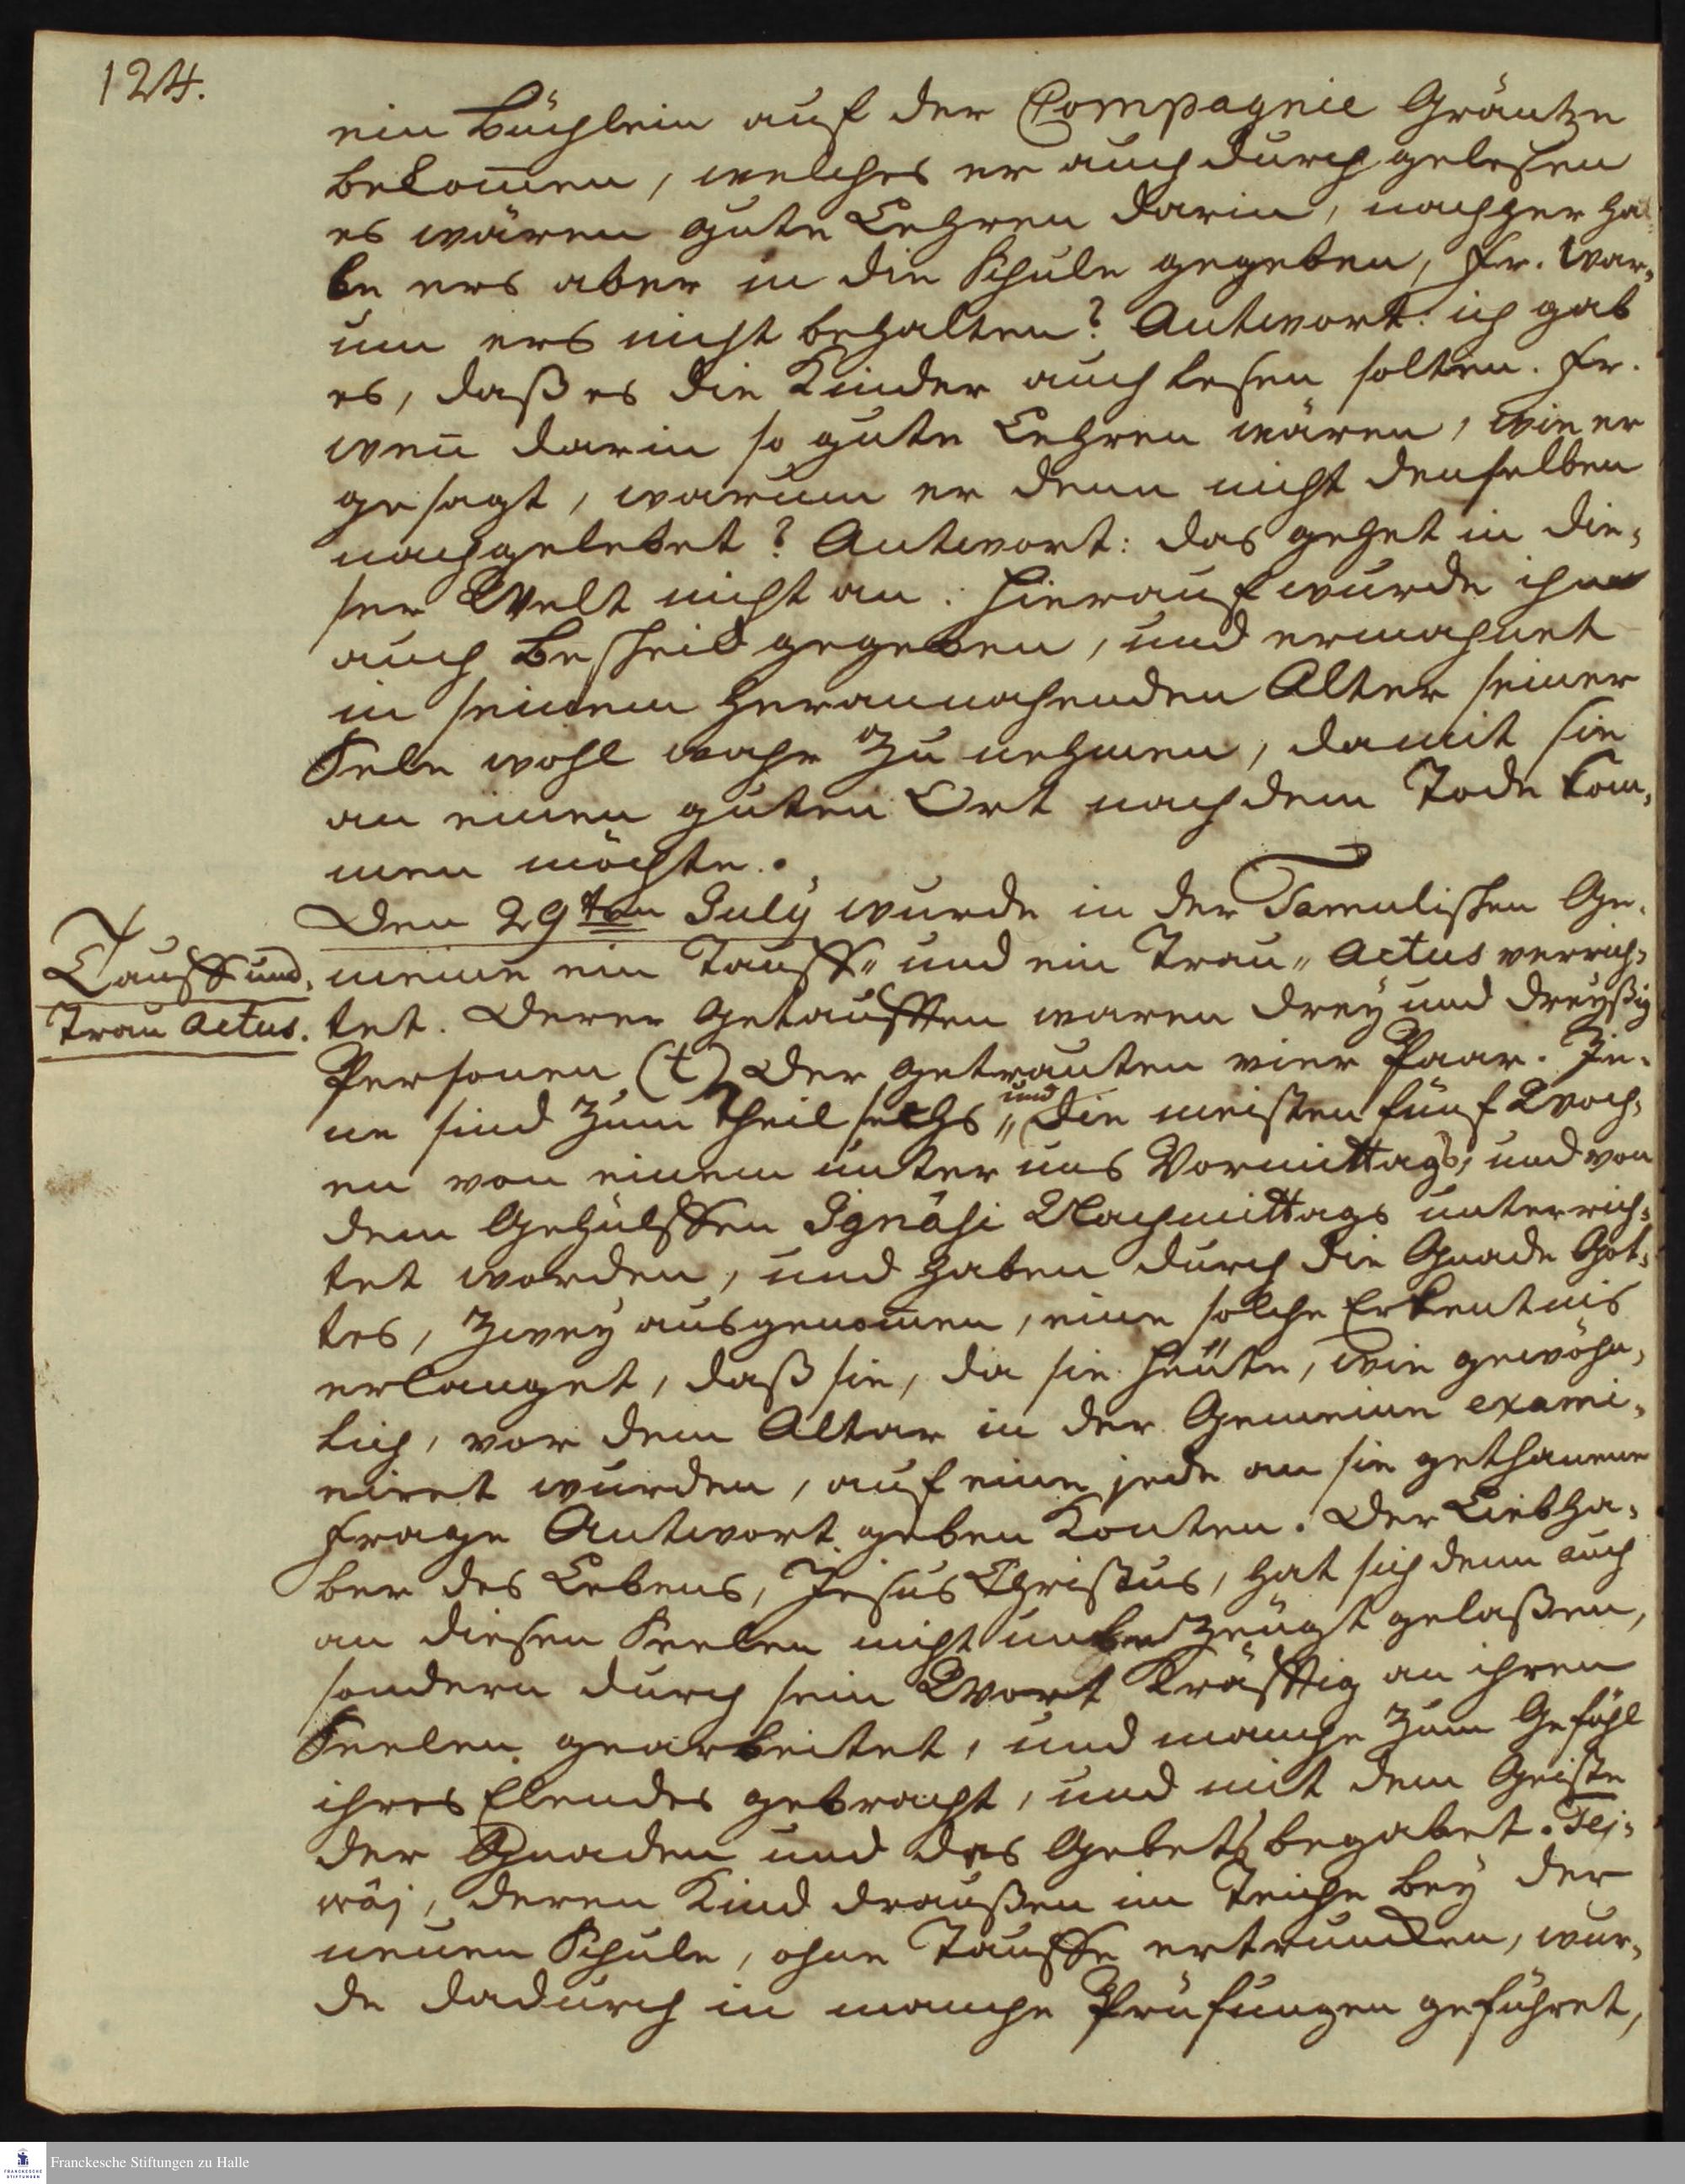 124.
ein Büchlein auf der Compagnie Gräntze
bekom̅en, welches er auch durch gelesen
es wären gute Lehren darin, nachher ha-
be ers aber in die Schule gegeben, Fr. War-
um ers nicht behalten? Antwort: ich gab
es, daß es die Kinder auch lesen solten. Fr.
wen̅ darin so gute Lehren wären, wie er
gesagt, warum er denn nicht denselben
nachgelebet? Antwort: das gehet in die-
ser Welt nicht an. Hierauf wurde ihm
auch Bescheid gegeben, und ermahnet
in seinem herannahenden Alter seiner
Sele wohl wahr zu nehmen, damit sie
an einen guten Ort nach dem Tode kom-
men möchte.
Den 29ten July wurde in der Tamulischen Ge-
Tauff und
meine ein Tauff- und ein Trau- Actus verrich-
Trau Actus.
tet. Derer Getaufften waren drey und dreyßig
Personen (t) Der getrauten vier Paar. Je-
ne sind zum Theil sechs, und die meisten fünf Woch-
en von einem unter uns Vormittags, und von
dem Gehülffen Ignási Nachmittags unterrich-
tet worden, und haben durch die Gnade Got-
tes, zwey ausgenom̅en, eine solche Erkentnis
erlanget, daß sie, da sie heute, wie gewöhn-
lich, vor dem Altar in der Gemeine exami-
niret wurden, auf eine jede an sie gethanene
Frage Antwort geben konten. Der Liebha-
ber des Lebens, Jesus Christus, hat sich denn auch
an diesen Seelen nicht unbezeugt gelaßen,
sondern durch sein Wort kräfftig an ihren
Seelen gearbeitet, und manche zum Gefühl
ihres Elendes gebracht, und mit dem Geiste
der Gnaden und des Gebets begabet. Tej-
wāj, deren Kind draußen im Teiche bey der
neuen Schule, ohne Tauffe ertruncken, wur-
de dadurch in manche Prüfungen geführet,
Franckesche Stiftungen zu Halle